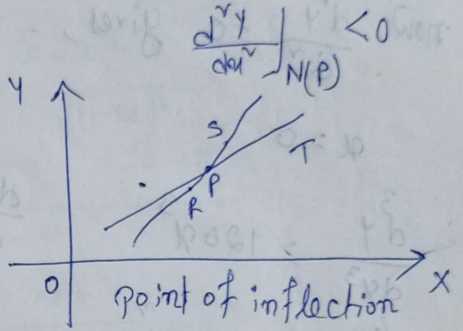 d²y/dx²]N(P) <0
Y
S
T
P
R
O
X
Point of inflection